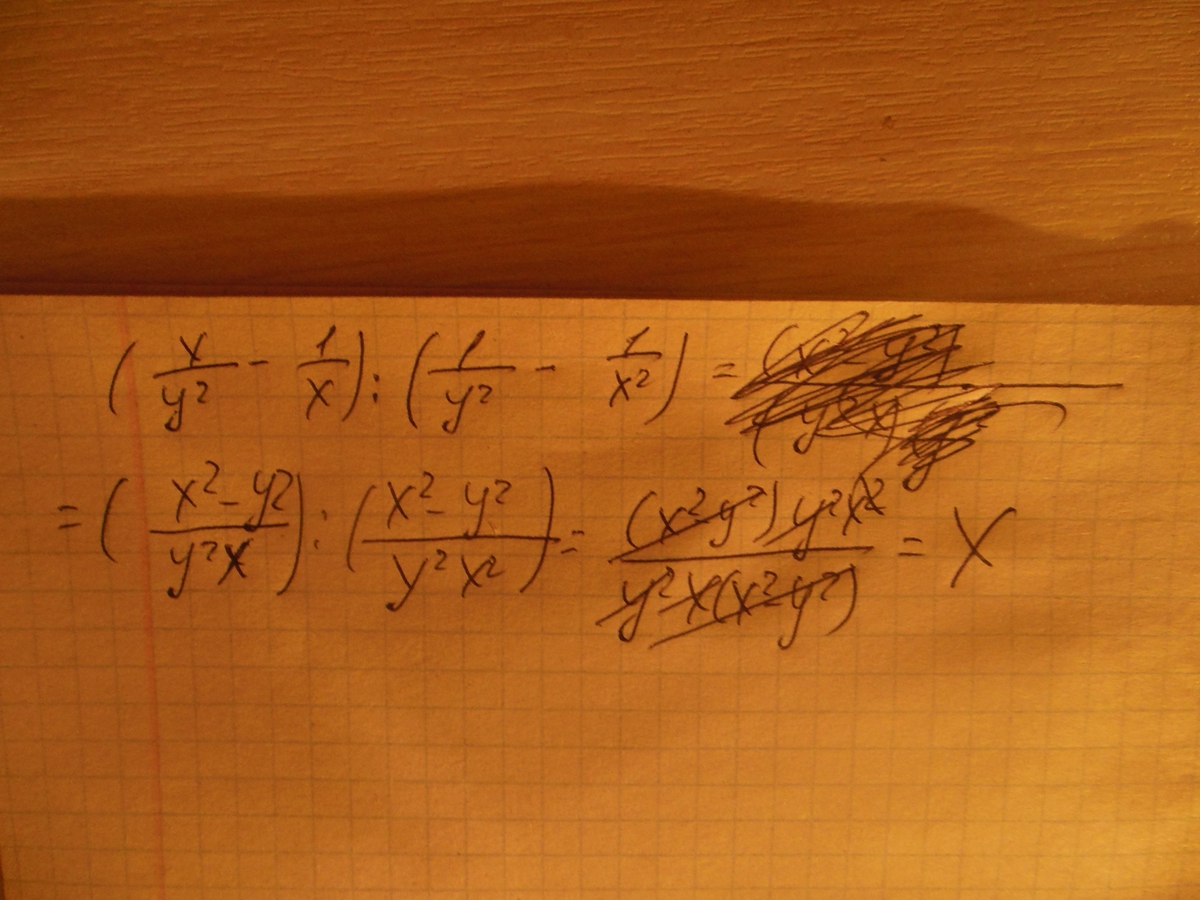 (x/y² - 1/x) : (1/y² - 1/x²) =
= (x² - y²/y²x) : (x² - y²/y²x²) = (x² - y²)y²x²/y²x(x² - y²) = x